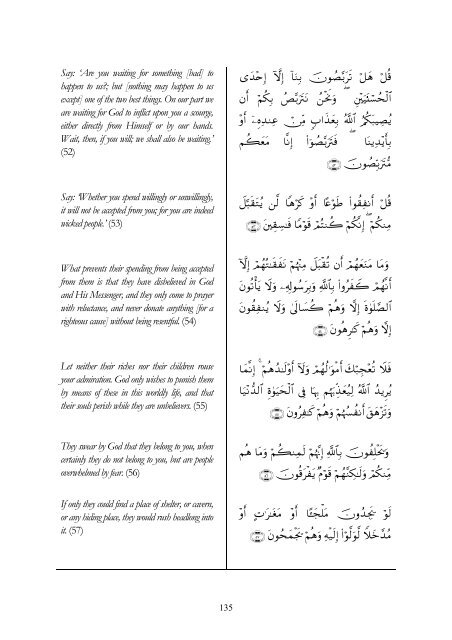 Say: ‘Are you waiting for something [bad] to
happen to us?; but [nothing may happen to us
except] one of the two best things. On our part we
are waiting for God to inflict upon you a scourge,
either directly from Himself or by our hands.
Wait, then, if you will; we shall also be waiting.’
(52)
قُلْ هَلْ تَرَبَّصُونَ بِنَآ إِلَّآ إِحْدَى
ٱلْحُسْنَيَيْنِ ۖ وَنَحْنُ نَتَرَبَّصُ بِكُمْ أَن
يُصِيبَكُمُ ٱللَّهُ بِعَذَابٍ مِّنْ عِندِهِۦٓ أَوْ
بِأَيْدِينَا ۖ فَتَرَبَّصُوٓا۟ إِنَّا مَعَكُم
مُّتَرَبِّصُونَ ﴿٥٢﴾
Say: ‘Whether you spend willingly or unwillingly,
it will not be accepted from you; for you are indeed
wicked people.’ (53)
قُلْ أَنفِقُوا۟ طَوْعًا أَوْ كَرْهًا لَّن يُتَقَبَّلَ
مِنكُمْ ۖ إِنَّكُمْ كُنتُمْ قَوْمًا فَـٰسِقِينَ ﴿٥٣﴾
What prevents their spending from being accepted
from them is that they have disbelieved in God
and His Messenger, and they only come to prayer
with reluctance, and never donate anything [for a
righteous cause] without being resentful. (54)
وَمَا مَنَعَهُمْ أَن تُقْبَلَ مِنْهُمْ نَفَقَـٰتُهُمْ إِلَّآ
أَنَّهُمْ كَفَرُوا۟ بِٱللَّهِ وَبِرَسُولِهِۦ وَلَا يَأْتُونَ
ٱلصَّلَوٰةَ إِلَّا وَهُمْ كُسَالَىٰ وَلَا يُنفِقُونَ
إِلَّا وَهُمْ كَـٰرِهُونَ ﴿٥٤﴾
Let neither their riches nor their children rouse
your admiration. God only wishes to punish them
by means of these in this worldly life, and that
their souls perish while they are unbelievers. (55)
فَلَا تُعْجِبْكَ أَمْوَٰلُهُمْ وَلَآ أَوْلَـٰدُهُمْ ۚ إِنَّمَا
يُرِيدُ ٱللَّهُ لِيُعَذِّبَهُم بِهَا فِى ٱلْحَيَوٰةِ ٱلدُّنْيَا
وَتَزْهَقَ أَنفُسُهُمْ وَهُمْ كَـٰفِرُونَ ﴿٥٥﴾
They swear by God that they belong to you, when
certainly they do not belong to you, but are people
overwhelmed by fear. (56)
وَيَحْلِفُونَ بِٱللَّهِ إِنَّهُمْ لَمِنكُمْ وَمَا هُم
مِّنكُمْ وَلَـٰكِنَّهُمْ قَوْمٌ يَفْرَقُونَ ﴿٥٦﴾
If only they could find a place of shelter, or cavern,
or any hiding place, they would rush headlong into
it. (57)
لَوْ يَجِدُونَ مَلْجَـًٔا أَوْ مَغَـٰرَٰتٍ أَوْ
مُدَّخَلًا لَّوَلَّوْا۟ إِلَيْهِ وَهُمْ يَجْمَحُونَ ﴿٥٧﴾
135